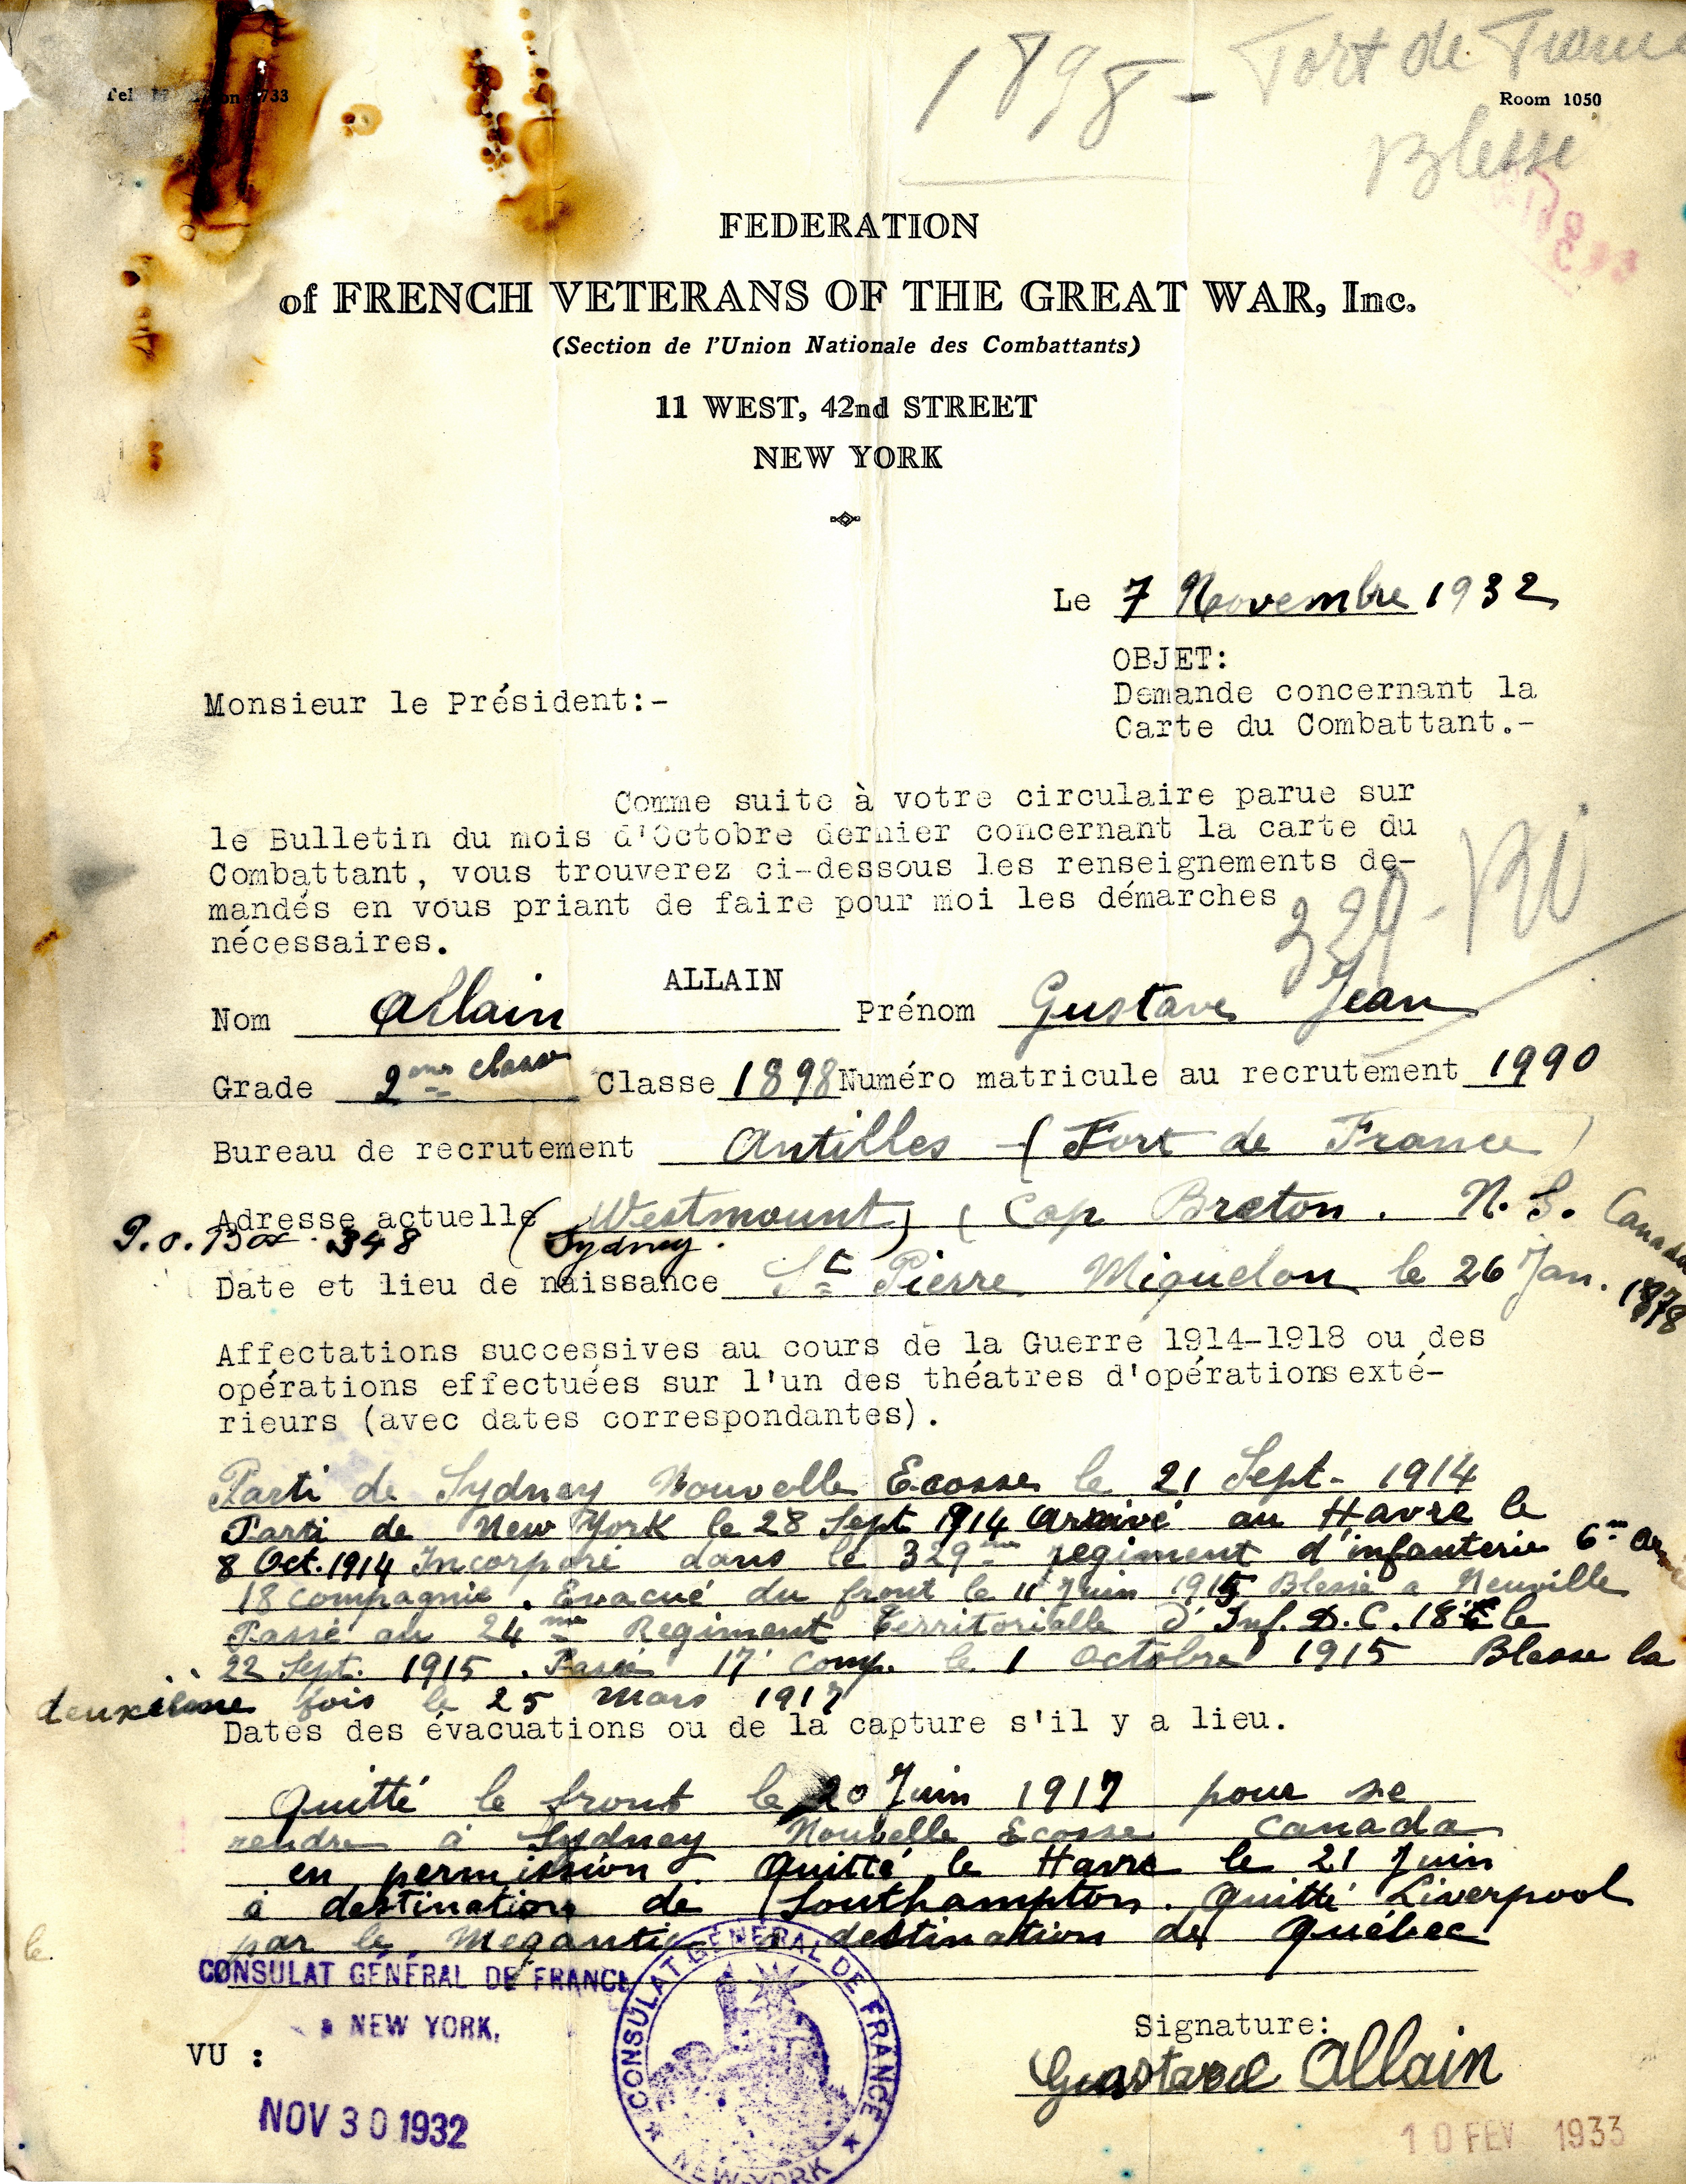 1898 - Fort de France
Room 1050
Blessé
FEDERATION
of FRENCH VETERANS OF THE GREAT WAR, Inc.
(Section de l'Union Nationale des Combattants)
11 WEST, 42nd STREET
NEW YORK
Le 7 Novembre 1932
OBJET:
Demande concernant la
Carte du Combattant.-
Monsieur le Président:-
Comme suite à votre circulaire parue sur
le Bulletin du mois d'Octobre dernier concernant la carte du
Combattant, vous trouverez ci-dessous les renseignements de-
mandés en vous priant de faire pour moi les démarches
nécessaires.
329 -
ALLAIN
Nom Allain Prénom Gustave Jean
Grade 2me classe Classe 1898 Numéro matricule au recrutement 1990
Bureau de recrutement Antilles - (Fort de France)
Adresse actuelle (Westmount) (Cap Breton. N. S. Canada
P.O. Box 348 (Sydney.
Date et lieu de naissance St Pierre Miquelon le 26 Jan. 1878
Affectations successives au cours de la Guerre 1914-1918 ou des
opérations effectuées sur l'un des théatres d'opérations exté-
rieurs (avec dates correspondantes).
Parti de Sydney Nouvelle Ecosse le 21 Sept- 1914
Parti de New York le 28 Sept 1914 Arrivé au Havre le
8 Oct. 1914 Incorporé dans le 329me regiment d'infanterie 6me
18 compagnie. Evacué du front le 11 Juin 1915 Blessé a Neuville
Passé au 24me Regiment Territorialle d'Inf. D.C. 18 le
22 Sept. 1915. Passé 17 Comp. le 1 Octobre 1915 Blesse la
deuxième fois le 25 Mars 1917
Dates des évacuations ou de la capture s'il y a lieu.
Quitté le front le 20 Juin 1917 pour se
rendre à Sydney Nouvelle Ecosse Canada
en permission. Quitté le Havre le 21 Juin
à destination de Southampton. Quitté Liverpool
par le Megantic à destination de Québec
CONSULAT GÉNÉRAL DE FRANCE
NEW YORK.
CONSULAT GÉNÉRAL DE FRANCE
NEW-YORK
VU :
NOV 30 1932
Signature:
Gustave Allain
10 FEV 1933